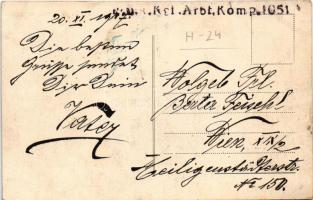 20. XI. 1917
K.u.k. Kgf. Arbt. Komp. 1051
H-24
Die besten
Grüsse sendet
Dir Dein
Vater
Wolgeb Frl.
Berta Feichtl
Wien, XIX/2
Heiligenstädterstr.
No 150.